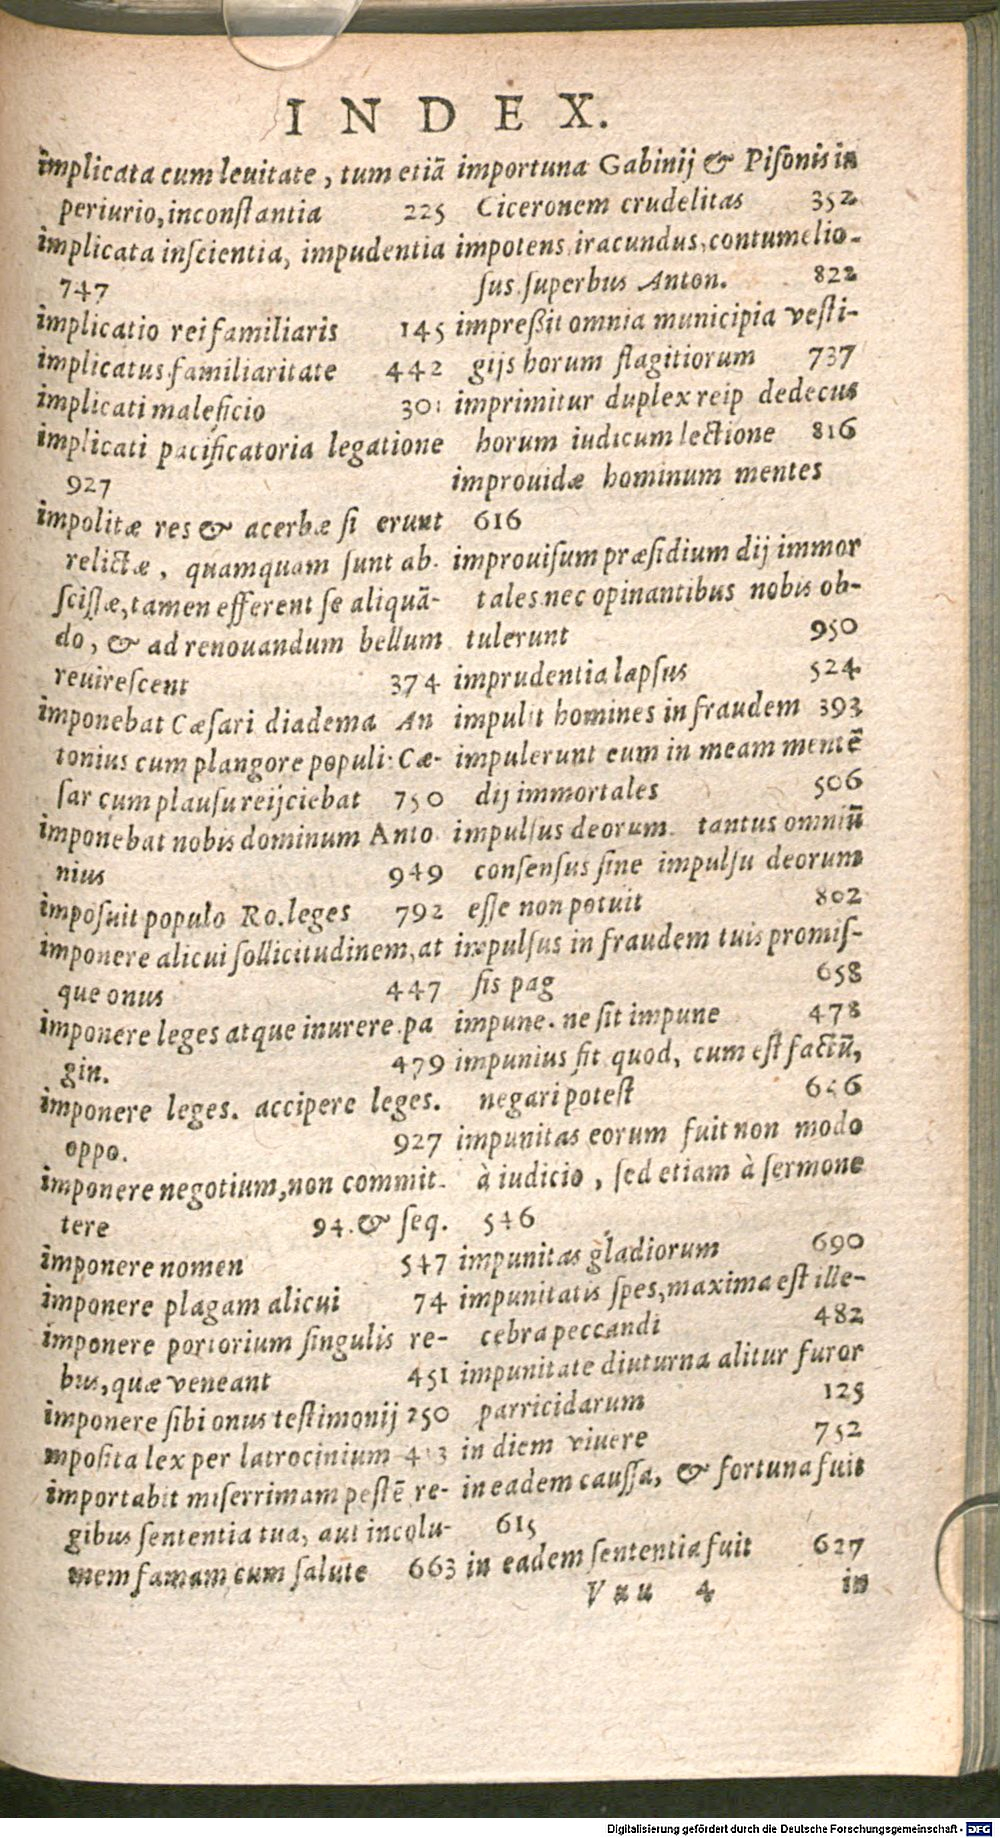 INDEX.
implicata cum leuitate, tum etiā
periurio, inconſtantia 225
implicata inſcientia, impudentia
747
implicatio rei familiaris 145
implicatus familiaritate 442
implicati maleficio
implicati pacificatoria legatione
927
impolitæ res & acerbæ ſi erunt
relictæ, quamquam ſunt ab-
ſciſſæ, tamen efferent ſe aliquā-
do, & ad renouandum bellum
reuireſcent 374
imponebat Cæſari diadema An
tonius cum plangore populi: Cæ-
ſar cum plauſu reijciebat 750
imponebat nobis dominum Anto
nius 949
impoſuit populo Ro. leges 792
imponere alicui ſollicitudinem, at
que onus 447
imponere leges atque inurere. pa
gin. 479
imponere leges. accipere leges.
oppo. 927
imponere negotium, non commit-
tere 94. & ſeq.
imponere nomen 547
imponere plagam alicui 74
imponere portorium ſingulis re-
bus, quæ veneant 451
imponere ſibi onus teſtimonij 250
mpoſita lex per latrocinium
importabit miſerrimam peſtē re-
gibus ſententia tua, aut incolu-
mem famam cum ſalute 663
importuna Gabinij & Piſonis in
Ciceronem crudelitas 352
impotens, iracundus, contumelio-
ſus, ſuperbus Anton. 822
impreßit omnia municipia veſti-
gijs horum flagitiorum 737
imprimitur duplex reip dedecus
horum iudicum lectione 816
improuidæ hominum mentes
616
improuiſum præſidium dij immor
tales nec opinantibus nobis ob-
tulerunt 950
imprudentia lapſus 524
impulit homines in fraudem 393
impulerunt eum in meam mentē
dij immortales 506
impulſus deorum. tantus omniū
conſenſus ſine impulſu deorum
eſſe non potuit 802
impulſus in fraudem tuis promiſ-
ſis pag 658
impune. ne ſit impune 478
impunius fit quod, cum eſt factū,
negari poteſt
impunitas eorum fuit non modo
à iudicio, ſed etiam à ſermone
546
impunitas gladiorum 690
impunitatis ſpes, maxima eſt ille-
cebra peccandi 482
impunitate diuturna alitur furor
parricidarum 125
in diem viuere 752
in eadem cauſſa, & fortuna fuit
615
in eadem ſententia fuit 627
Vuu 4 in
Digitalisierung gefördert durch die Deutsche Forschungsgemeinschaft - DFG